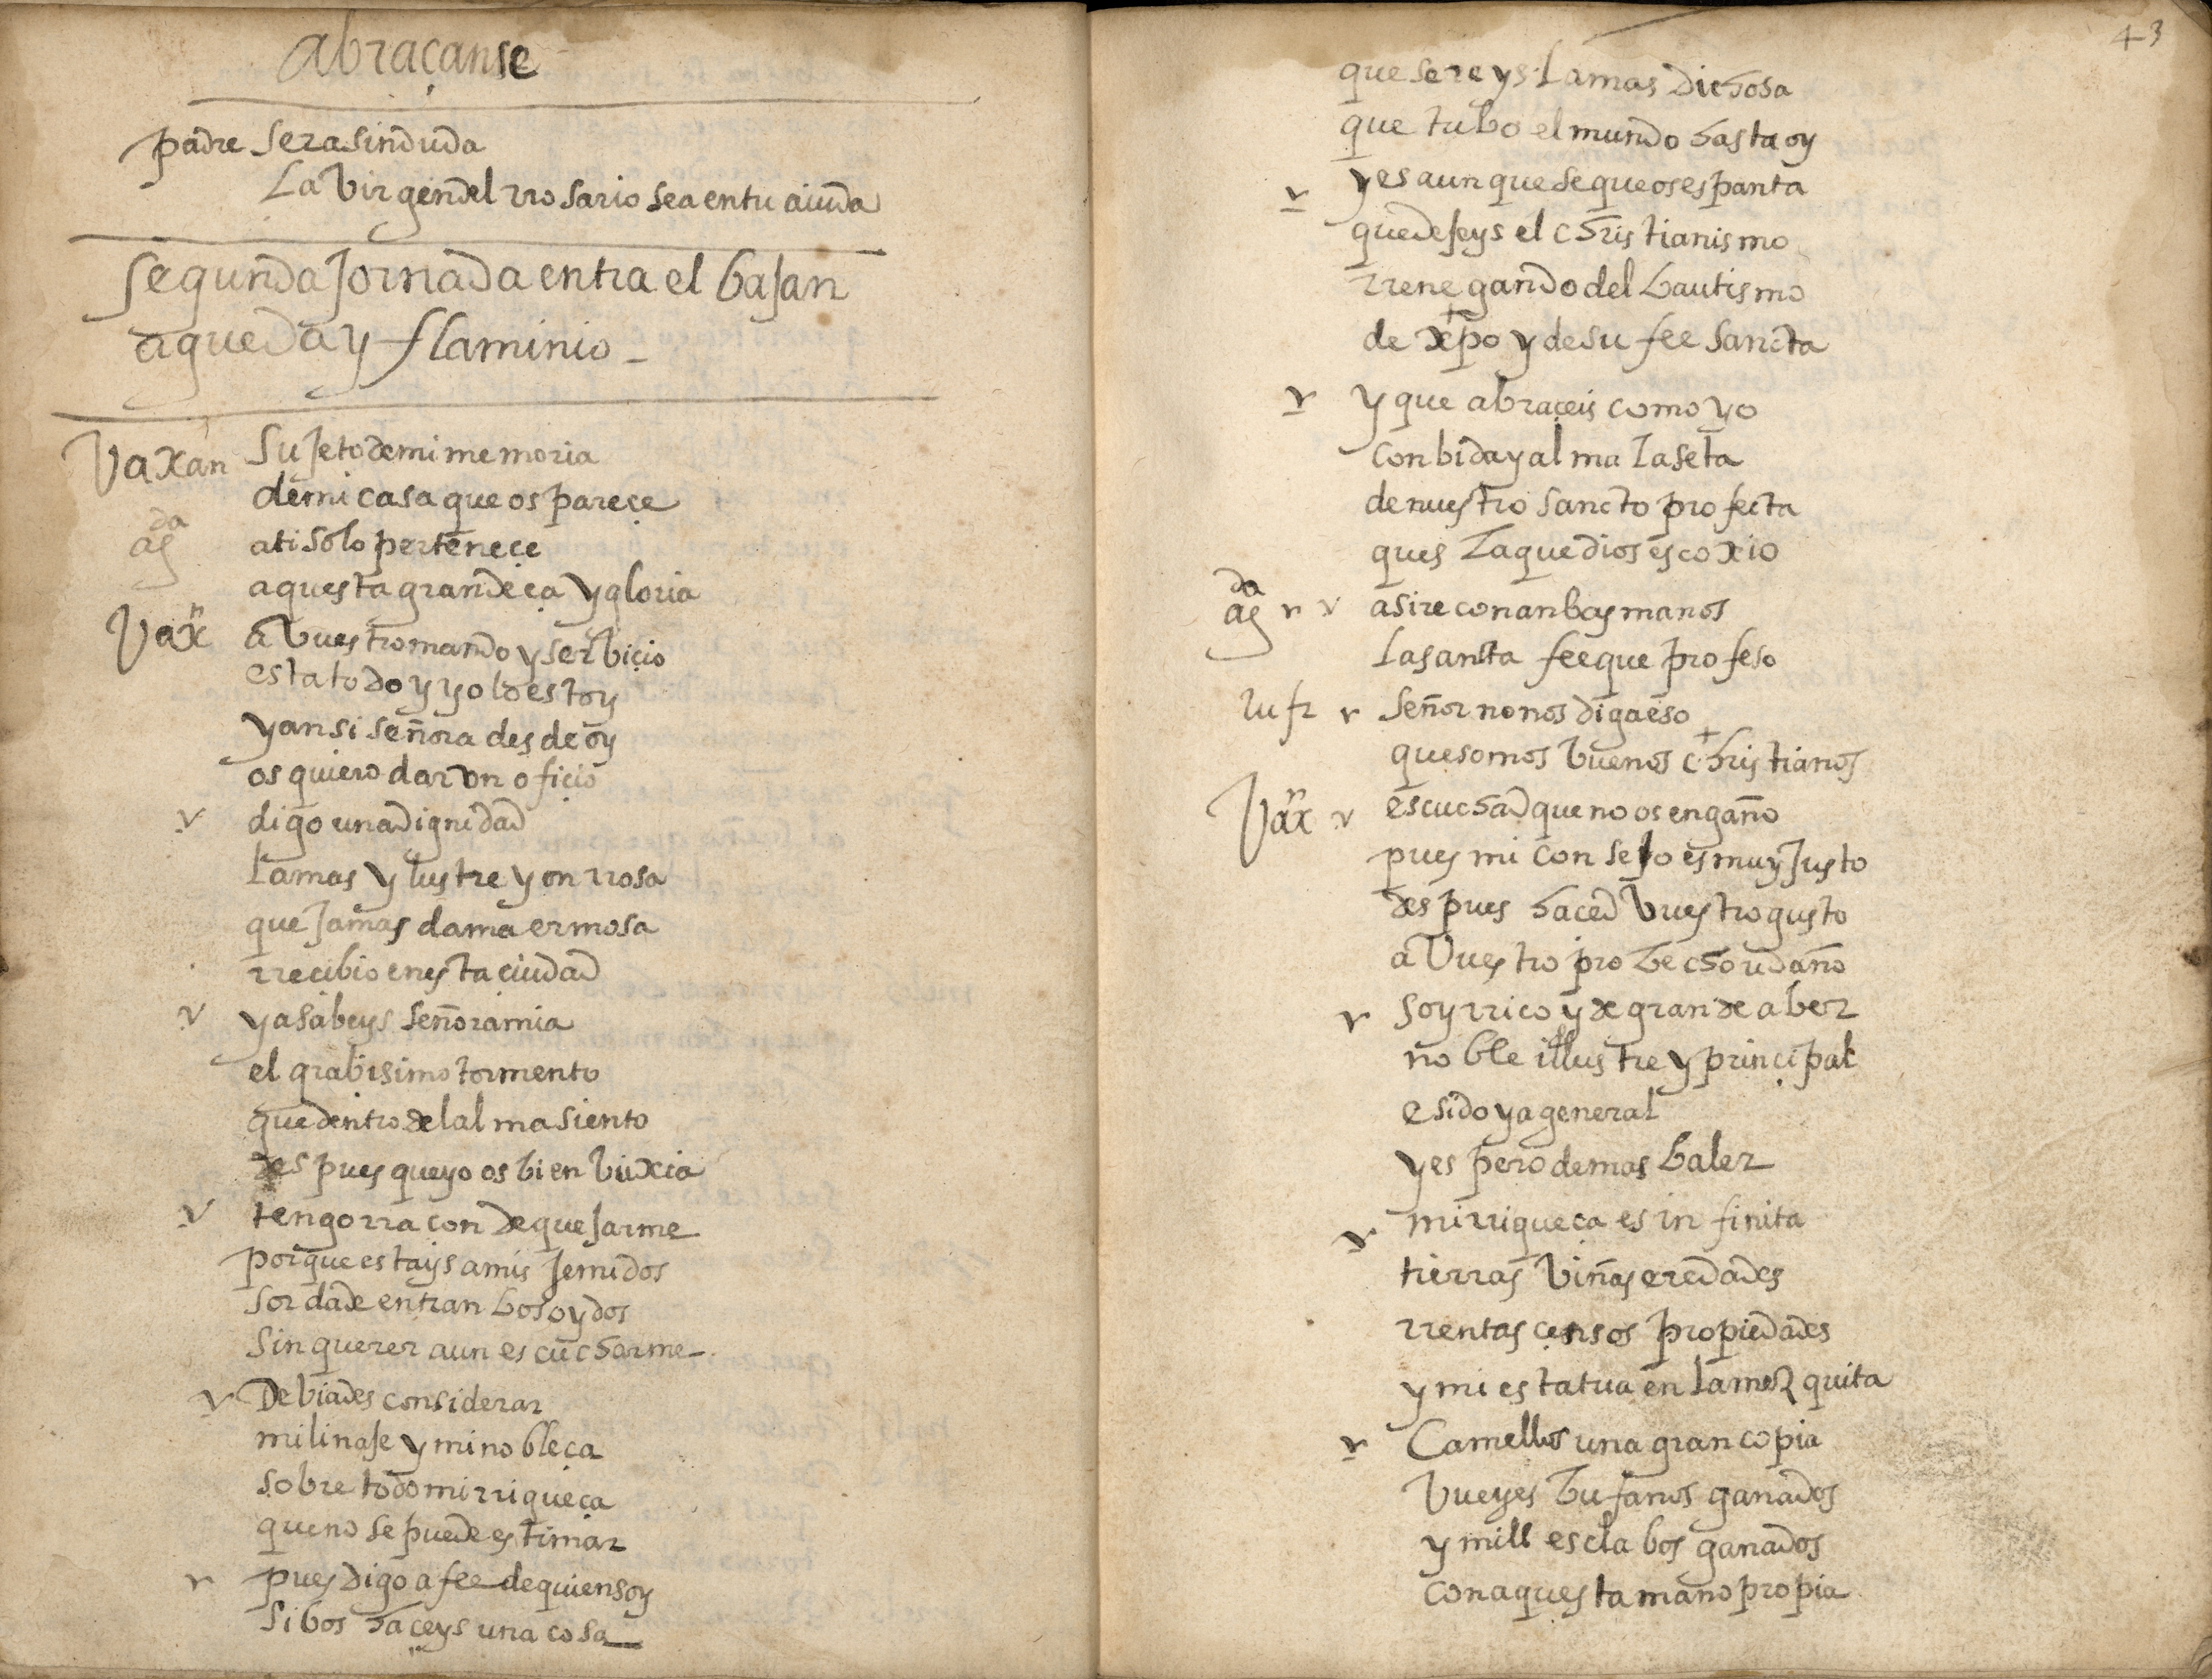 abraçanse
padre sera sin duda
la virgen del rrosario sea en tu aiuda
segunda Jornada entra el baJan
agueda y flaminio
Vaxan suJeto de mi memoria
de mi casa que os pareçe
agda a ti solo perteneçe
aquesta grandeça y gloria
Vaxn a vuestro mando y serbiçio
esta todo y yo lo estoy
y ansi señora desde oy
os quiero dar un ofiçio
v digo una dignidad
la mas ylustre y onrrosa
que Jamas dama ermosa
rrecibio en esta ciudad
v ya sabeys señora mia
el grabisimo tormento
que dentro del alma siento
despues que yo os bi en buxia
v tengo rraçon de queJarme
porque estays a mis Jemidos
sorda de entranbos oydos
sin querer aun escucharme
v Debiades considerar
mi linaJe y mi nobleça
sobre todo mi rriqueça
que no se puede estimar
v pues digo a fee de quien soy
si bos haçeys una cosa
43
que sereys la mas dichosa
que tubo el mundo hasta oy
v y es aunque se que os espanta
que deJeys el christianismo
rrenegando del bautismo
de xpo y de su fee sancta
v y que abraçeis como yo
con bida y alma la seta
de nuestro sancto profecta
ques la que dios escoxio
agda v v asire con anbas manos
la santa fee que profeso
rufr v señor no nos diga eso
que somos buenos christianos
Vaxn v escuchad que no os engaño
pues mi conseJo es muy Justo
despues haced vuestro gusto
a vuestro probecho u daño
v soy rrico y de grande aber
noble illustre y prinçipal
e sido ya general
y espero de mas baler
v mi rriqueça es infinita
tierras viñas eredades
rrentas çensos propiedades
y mi estatua en la mezquita
v Camellos una gran copia
vueyes bufanos ganados
y mill esclabos ganados
con aquesta mano propia